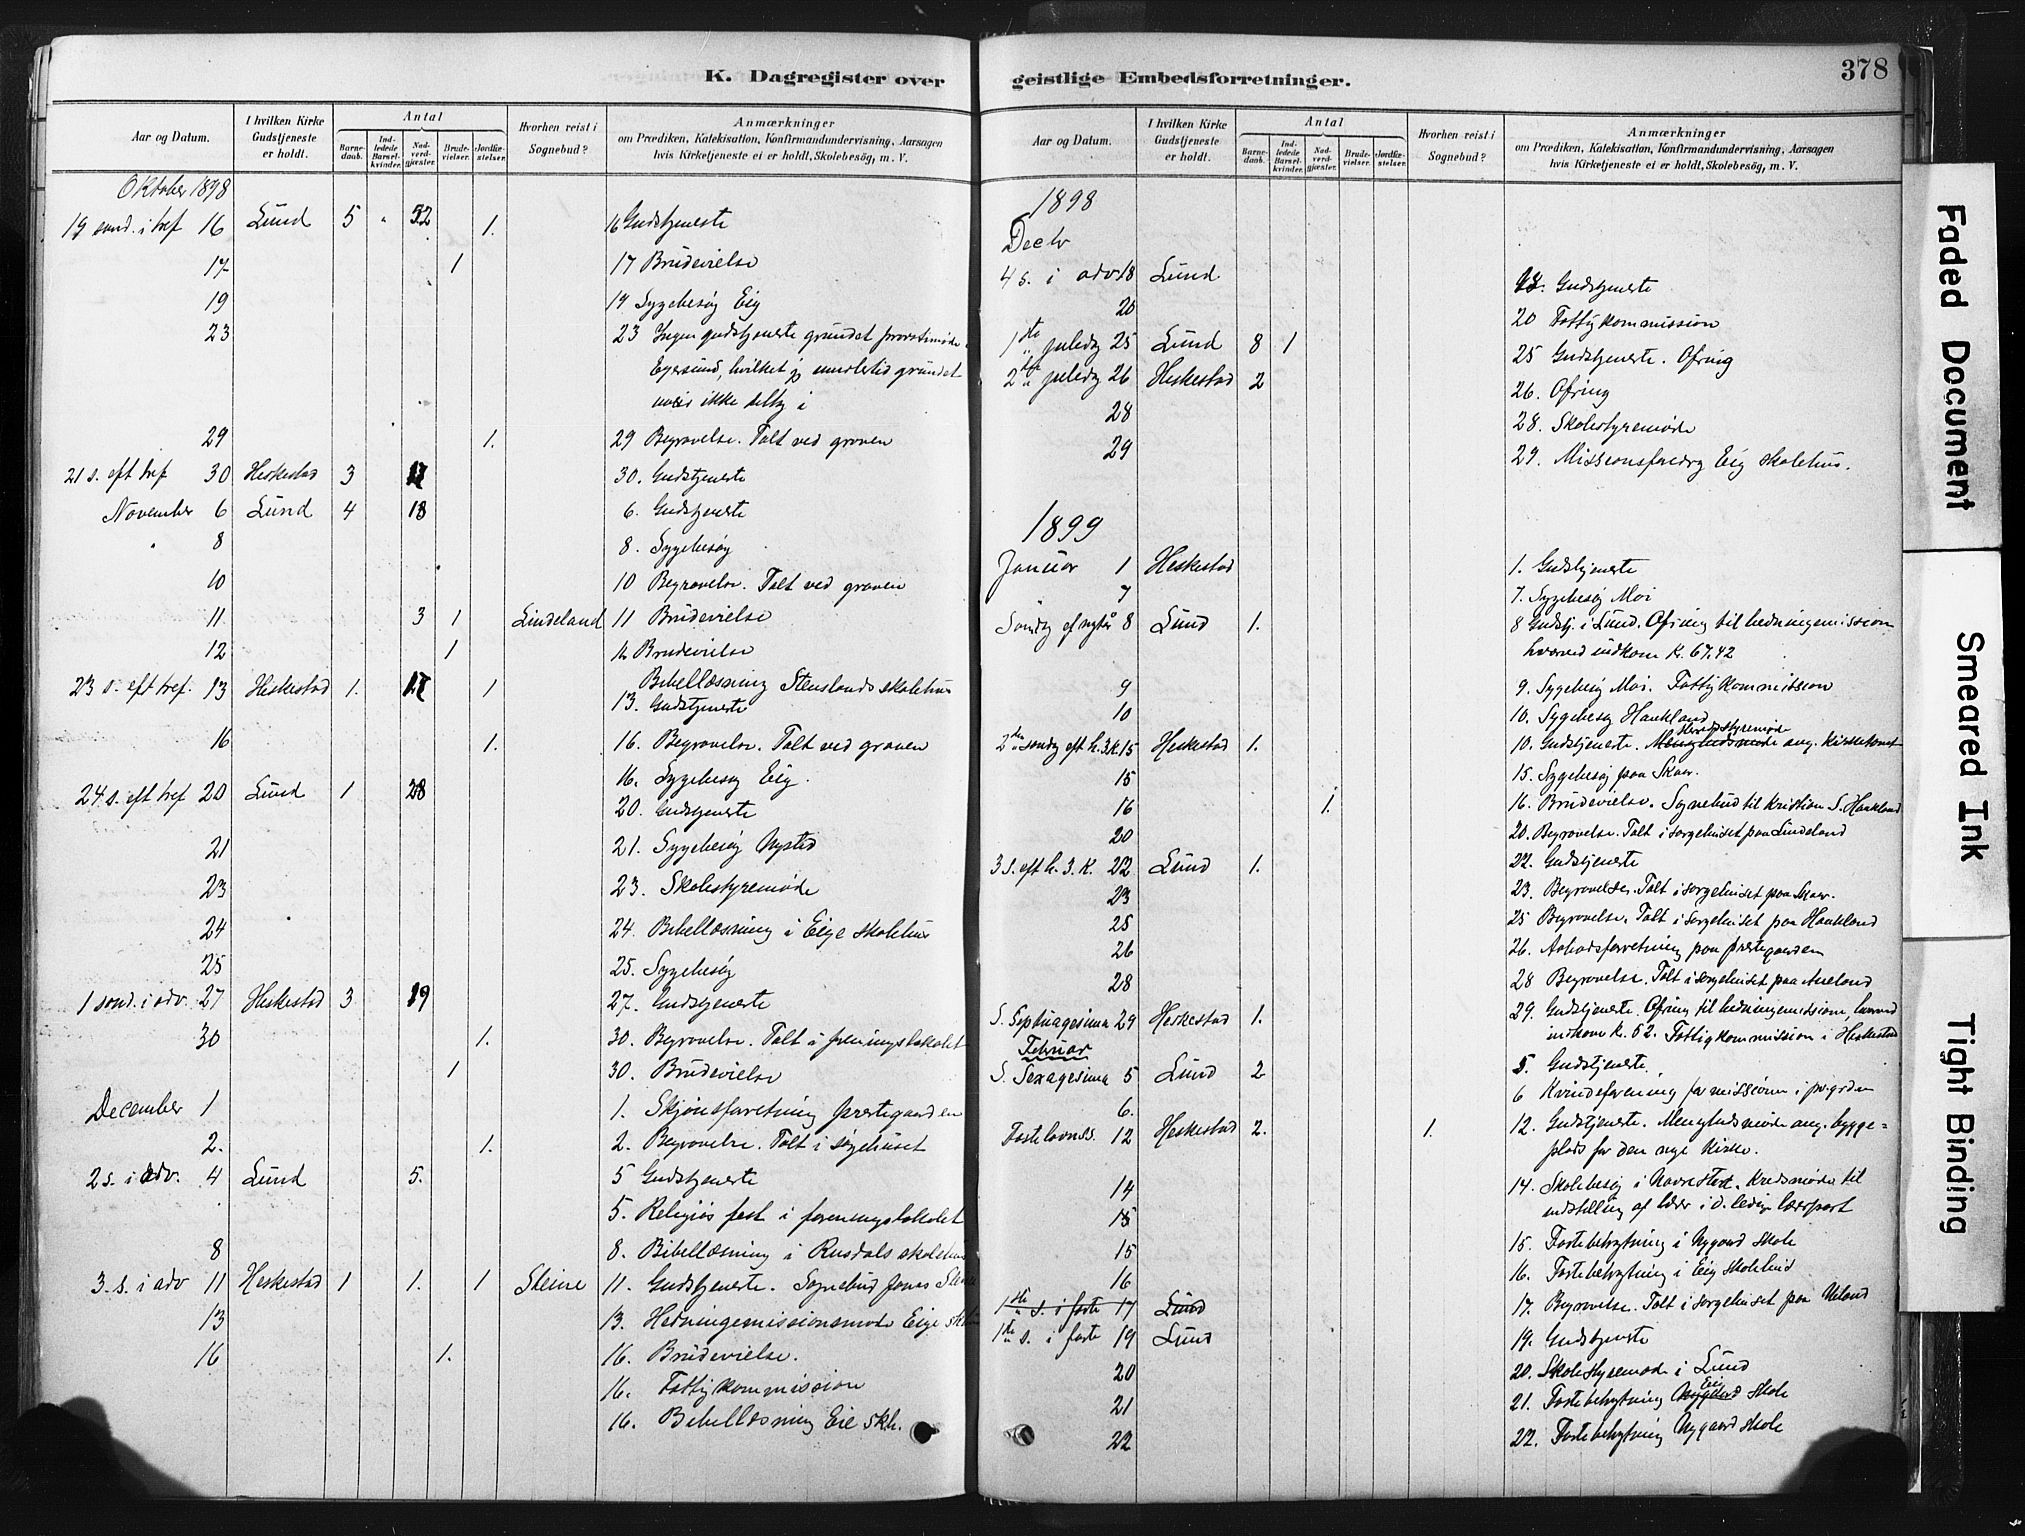 K. Dagregister over
Aar og Datum.
I hvilken Kirke Gudstjeneste er holdt.
Antal
Barne-daab.
Ind-ledede Barsel-kvinder.
Nad-verd-gjæster.
Brude-vielser.
Jordfæ-stelser.
Hvorhen reist i Sognebud?
Anmærkninger
om Prædiken, Katekisation, Konfirmandundervisning, Aarsagen
hvis Kirketjeneste ei er holdt, Skolebesög, m. V.
Oktober 1898
19 sond. i tref 16 Lund 5 " 52 1. 16 Gudstjeneste
17 1 17 Brudevielse
19 19 Sygebesøg Eig
23 23 Ingen gudstjeneste grundet provstimøde i
Egersund, hvilket jeg imidlertid grundet
ikke deltog i
29 1. 29 Begravelse. Talt ved graven
21 s. eft tref 30 Heskestad 3 30. Gudstjeneste
November 6 Lund 4 18 6. Gudstjeneste
" 8 8. Sygebesøg
10 10 Begravelse. Talt ved graven
11 3 1 Lindeland 11 Brudevielse
12 1 12 Brudevielse
Bibellæsning Steinslands skolehus
23 s. eft tref. 13 Heskestad 1. 17 1 13. Gudstjeneste
16 1. 16. Begravelse. Talt ved graven
16. Sygebesøg Eig.
24 s. eft tref 20 Lund 1 28 20. Gudstjeneste
21 21. Sygebesøg Nysted
23 23. Skolestyremøde
24 24. Bibellæsning i Eige skolehus
25 25. Sygebesøg
1 sond. i adv. 27 Heskestad 3 19 27. Gudstjeneste
30 1. 30. Begravelse. Talt i foreningslokalet
1 30. Brudevielse
December 1 1. Skjønsforretning prestegaarden
2. 1. 2. Begravelse. Talt i sørgehuset
2 s. i adv. 4 Lund 5. 5 Gudstjeneste
5. Religiøs fest i foreningslokalet
8 8. Bibellæsning i Rusdals skolehus
3. s. i adv 11 Heskestad 1 1. 1 Steine 11. Gudstjeneste. Sognebud Jonas
13 13. Hedningemissionsmøde Eige
16 1. 16. Brudevielse.
16. Fattigkommission
16. Bibellæsning Eie skh.
geistlige Embedsforretninger.
378
Aar og Datum.
I hvilken Kirke Gudstjeneste er holdt.
Antal
Barne-daab.
Ind-ledede Barsel-kvinder.
Nad-verd-gjæster.
Brude-vielser.
Jordfæ-stelser.
Hvorhen reist i Sognebud?
Anmærkninger
om Prædiken, Katekisation, Konfirmandundervisning, Aarsagen
hvis Kirketjeneste ei er holdt, Skolebesög, m. V.
1898
Decbr
4 s. i adv 18 Lund 18. Gudstjeneste
20 20 Fattigkommission
1ste juledag 25 Lund 8 1 25 Gudstjeneste. Ofring
2den juledag 26 Heskestad 2 26. Ofring
28 28. Skolestyremøde
29 29. Missionsforedrag Eig skolehus.
1899
Januar 1 Heskestad 1. Gudstjeneste
7 7. Sygebesøg Moi
Søndag ef nytår 8 Lund 1. 8 Gudstj. i Lund. Ofring til hedningemission
hvorved indkom K. 67.42
9 9. Sygebesøg Moi. Fattigkommission
10 10. Sygebesøg Haukland
Herredsstyremøde
2den søndag eft h.3.k. 15 Heskestad 1. 10. Gudstjeneste. Menighedsmøde ang. kirketomt
15 15. Sygebesøg paa Skaar.
16 1. 16. Brudevielse. Sognebud til Kristian S. Haukland
20 20. Begravelse. Talt i sorgehuset paa Lindeland
3 s. eft h. 3. k. 22 Lund 1. 22. Gudstjeneste
23 23. Begravelse. Talt i sorgehuset paa Skaar.
25 25 Begravelse. Talt i sorgehuset paa Haukland
26 26. Aabodsforretning paa prestegaarden
28 28 Begravelse. Talt i sorgehuset paa Aueland
S. Septuagesima 29 Heskestad 1. 29. Gudstjeneste. Ofring til hedningemission, hvorved
indkom K. 62. Fattigkommission i Heskestad
Februar
S. Sexagesima 5 Lund 2 5. Gudstjeneste.
6. 6 Kvindeforening for missionen i pr.gården
Fastelavnss. 12 Heskestad 2. 1. 12. Gudstjeneste. Menighedsmøde ang. bygge=
plads for den nye kirke.
14 14. Skolebesøg i . Kredsmøde til
indstilling af lærer i d. ledige lærerpost
15
15 15. Fastebetragtning i Nygaard Skole
16 16. Fastebetragtning i Eig Skolehus
1ste s. i faste 17 Lund 17. Begravelse. Talt i sorgehuset paa Ueland
1ste s. i faste 19 Lund 19. Gudstjeneste
20 20. Skolestyremøde i Lund
Eig
21 21. Fastebetragtning Nygaard Skole
22 22. Fastebetragtning Nygaard Skole
Faded Document
Smeared Ink
Tight Binding